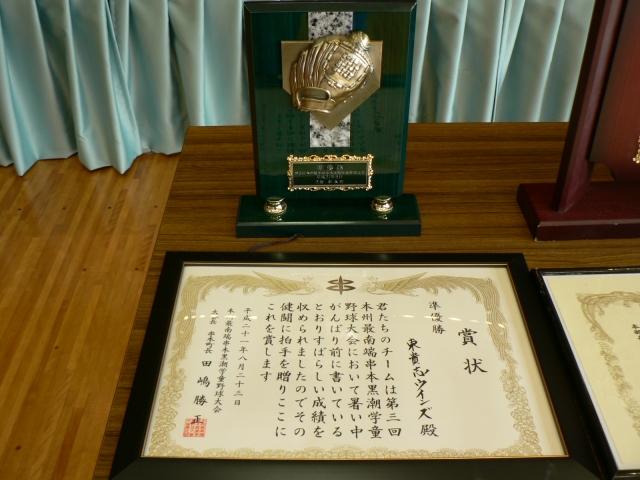 賞状
準優勝
東貴志ツインズ殿
君たちのチームは第三回
本州最南端串本黒潮学童
野球大会において暑い中
がんばり前に書いている
とおりすばらしい成績を
収められましたのでその
健闘に拍手を贈りここに
これを賞します
平成二十一年八月二十三日
本州最南端串本黒潮学童野球大会
大会長 串本町長 田嶋勝正
準優勝